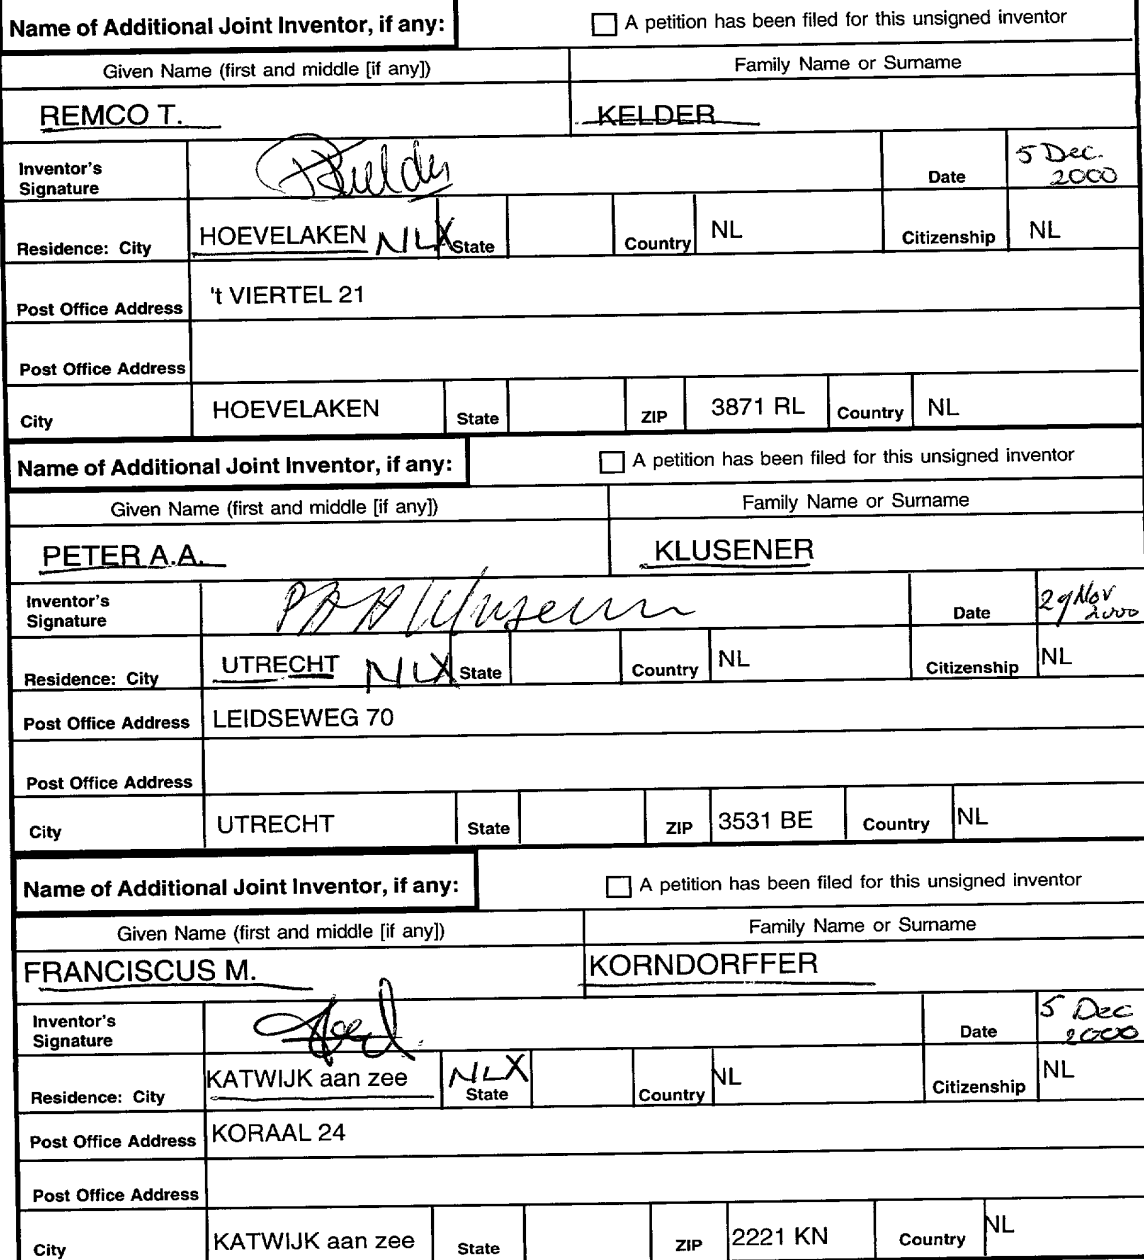 Name of Additional Joint Inventor, if any: A petition has been filed for this unsigned inventor
Given Name (first and middle [if any]) Family Name or Surname
REMCO T. KELDER
Inventor's Signature Kelder Date 5 Dec. 2000
Residence: City HOEVELAKEN NLX State Country NL Citizenship NL
Post Office Address 't VIERTEL 21
Post Office Address
City HOEVELAKEN State ZIP 3871 RL Country NL
Name of Additional Joint Inventor, if any: A petition has been filed for this unsigned inventor
Given Name (first and middle [if any]) Family Name or Surname
PETER A.A. KLUSENER
Inventor's Signature PAAKlusener Date 29 Nov 2000
Residence: City UTRECHT NLX State Country NL Citizenship NL
Post Office Address LEIDSEWEG 70
Post Office Address
City UTRECHT State ZIP 3531 BE Country NL
Name of Additional Joint Inventor, if any: A petition has been filed for this unsigned inventor
Given Name (first and middle [if any]) Family Name or Surname
FRANCISCUS M. KORNDORFFER
Inventor's Signature Date 5 Dec 2000
Residence: City KATWIJK aan zee NLX State Country NL Citizenship NL
Post Office Address KORAAL 24
Post Office Address
City KATWIJK aan zee State ZIP 2221 KN Country NL